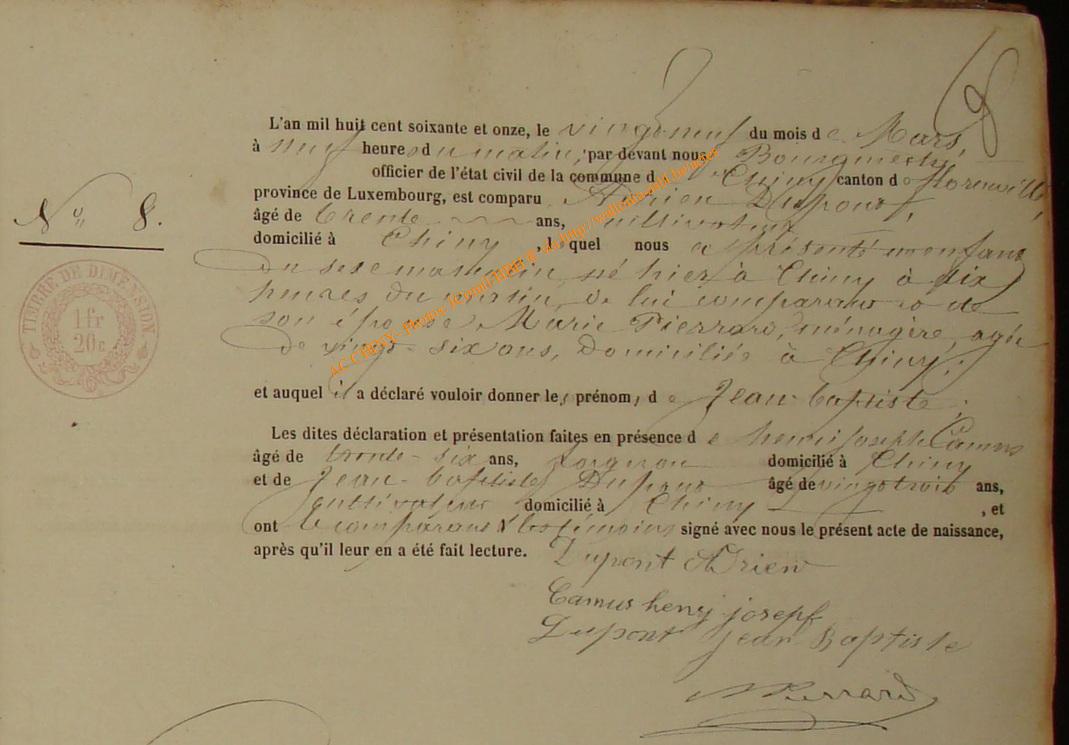 8
L'an mil huit cent soixante et onze, le vingt neuf du mois de Mars,
à neuf heures du matin, par devant nous Bourgmestre
officier de l'état civil de la commune de Chiny canton de Florenville,
province de Luxembourg, est comparu Adrien Dupont,
âgé de trente ans, cultivateur
domicilié à Chiny, lequel nous a présenté un enfant
N° 8.
du sexe masculin, né hier à Chiny à dix
heures du matin, de lui comparant et de
son épouse Marie Pierrard, ménagère, agée
de vingt-six ans, domiciliée à Chiny;
TIMBRE DE DIMENSION
1 fr
20 c
et auquel il a déclaré vouloir donner les prénoms de Jean-baptiste;
Les dites déclaration et présentation faites en présence de henri joseph Camus
âgé de trente-six ans, domicilié à Chiny
et de Jean-baptiste Dupont âgé de vingt trois ans,
cultivateur domicilié à Chiny, et
ont le comparant & les témoins signé avec nous le présent acte de naissance,
après qu'il leur en a été fait lecture.
Dupont Adrien
Camus henry joseph
Dupont Jean Baptiste
Pierrard